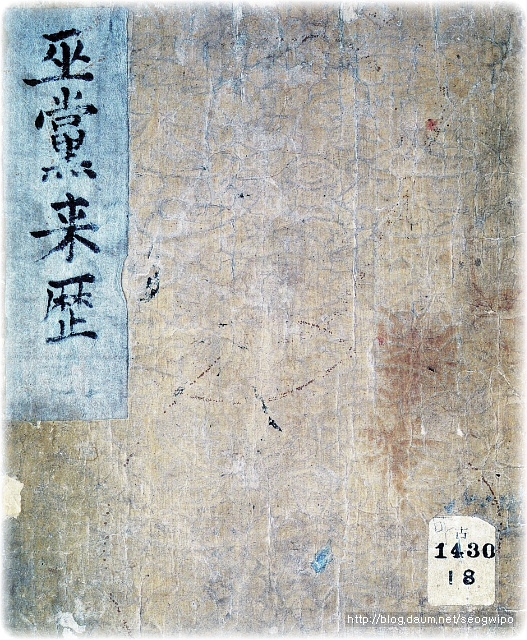 巫黨来歴
古
1430
18
http://blog.daum.net/seogwipo